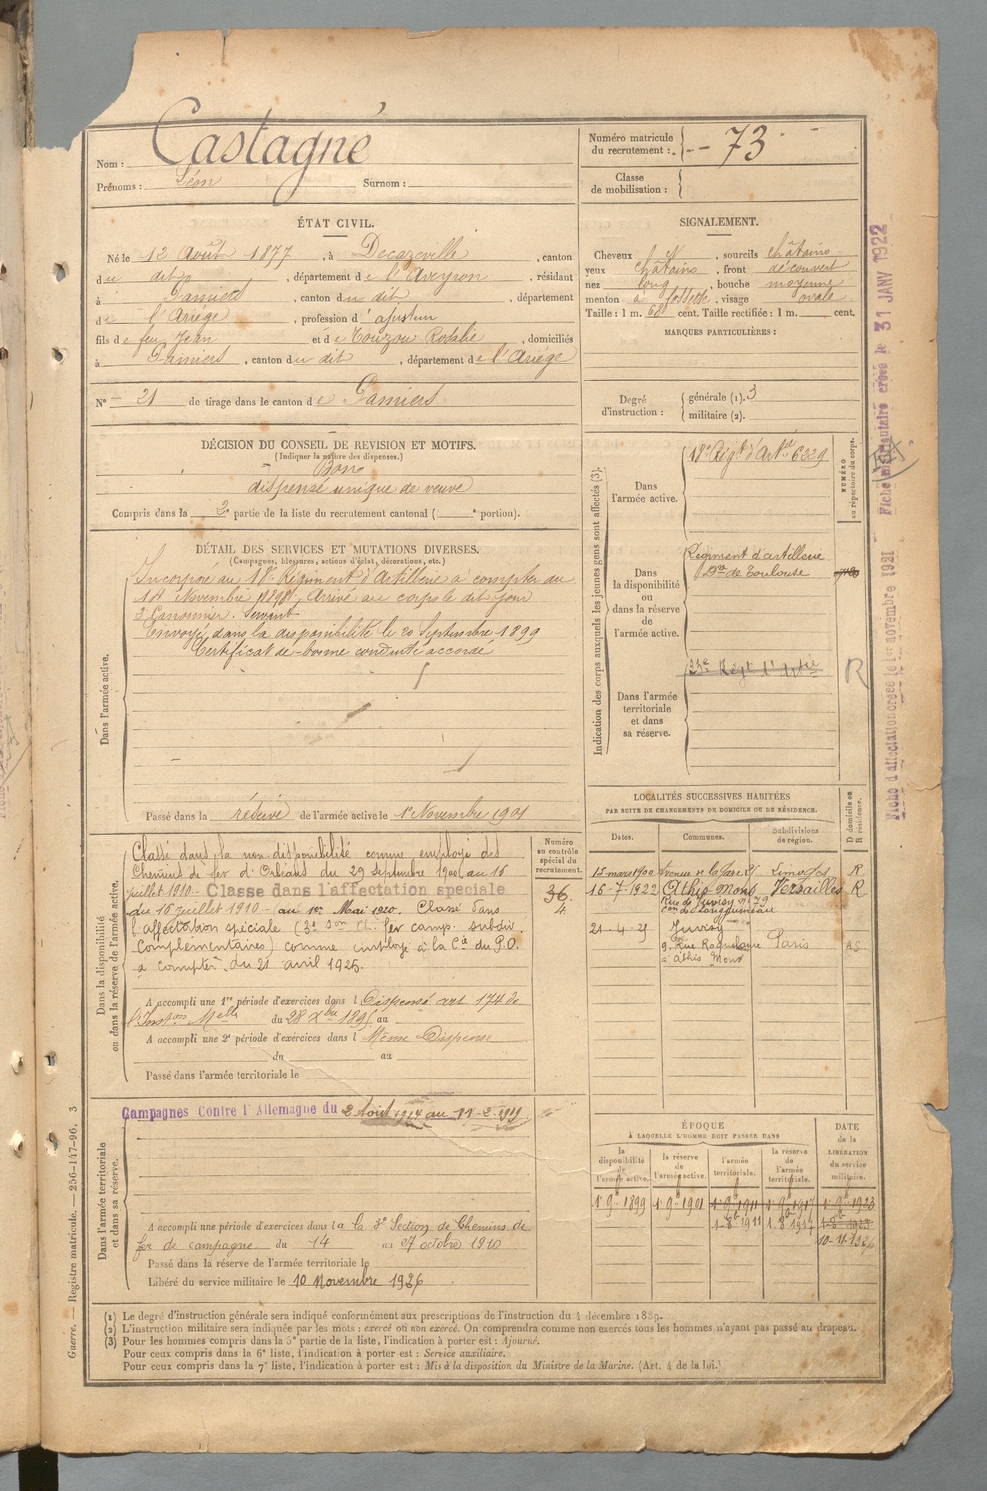 Nom : Castagné
Prénoms : Léon Surnom :
Numéro matricule
du recrutement : 73
Classe
de mobilisation :
ÉTAT CIVIL.
Né le 12 Août 1877, à Decazeville, canton
du dit, département de l'Aveyron, résidant
à Pamiers, canton du dit, département
de l'Ariège, profession d'ajusteur
fils de feu Jean et de Touzou Rosalie, domiciliés
à Pamiers, canton du dit, département de l'Ariège
N° 21 de tirage dans le canton de Pamiers
SIGNALEMENT.
Cheveux et, sourcils châtains
yeux châtains, front découvert
nez long, bouche moyenne
menton à fossette, visage ovale
Taille : 1 m. 68 cent. Taille rectifiée : 1 m. cent.
MARQUES PARTICULIÈRES :
Degré
d'instruction :
générale (1). 3
militaire (2).
DÉCISION DU CONSEIL DE REVISION ET MOTIFS.
(Indiquer la nature des dispenses.)
Bon
dispensé unique de veuve
Compris dans la 2e partie de la liste du recrutement cantonal ( e portion).
DÉTAIL DES SERVICES ET MUTATIONS DIVERSES.
(Campagnes, blessures, actions d'éclat, décorations, etc.)
Dans l'armée active.
Incorporé au 18e Régiment d'Artillerie à compter du
14 Novembre 1898, Arrivé au corps le dit jour
2e Canonnier. Servant
Envoyé dans la disponibilité le 20 Septembre 1899
Certificat de bonne conduite accordé
Passé dans la réserve de l'armée active le 1er Novembre 1901
Indication des corps auxquels les jeunes gens sont affectés (3).
NUMÉRO
au répertoire du corps.
Dans
l'armée active.
18e Régt d'Artie 6329
Dans
la disponibilité
ou
dans la réserve
de
l'armée active.
Régiment d'artillerie
Don de Toulouse
Dans l'armée
territoriale
et dans
sa réserve.
23e Régt d'Artie
R
Dans la disponibilité
ou dans la réserve de l'armée active.
Classé dans la non-disponibilité comme employé des
Chemins de fer d'Orléans du 29 Septembre 1900 au 15
juillet 1910 - Classé dans l'affectation spéciale
du 16 juillet 1910 - au 1er Mai 1920. Classé dans
l'affectation spéciale (3e Son Ch. fer camp. subdiv.
Complémentaires) comme employé à la Cie du P.O.
à compter du 21 avril 1925.
A accompli une 1re période d'exercices dans l Dispensé art 174 de
l'Instion Melle du 28 Xbre 1895 au
A accompli une 2e période d'exercices dans l Même Dispense
du au
Passé dans l'armée territoriale le
Numéro
au contrôle
spécial du
recrutement.
36
4
LOCALITÉS SUCCESSIVES HABITÉES
PAR SUITE DE CHANGEMENTS DE DOMICILE OU DE RÉSIDENCE.
Dates. Communes. Subdivisions
de région. D domicile ou
R résidence.
15 mars 1900 Avenue de la Gare Limoges R
16-7-1922 Athis-Mons Versailles R
Rue de Juvisy n° 79
Con de Longjumeau
21-4-25 Juvisy Paris
9, Rue Roquelaure
à Athis Mons
Dans l'armée territoriale
et dans sa réserve.
Campagnes Contre l'Allemagne du 2 Août 1914 au 11-2-1919.
A accompli une période d'exercices dans la 3e Section de Chemins de
fer de campagne du 14 au 27 octobre 1910
Passé dans la réserve de l'armée territoriale le
Libéré du service militaire le 10 Novembre 1926.
ÉPOQUE
À LAQUELLE L'HOMME DOIT PASSER DANS
la
disponibilité
de
l'armée active. la réserve
de
l'armée active. l'armée
territoriale. la réserve
de
l'armée
territoriale.
DATE
de la
LIBÉRATION
du service
militaire.
1-9-1899 1-9-1901 1-9-1911 1-9-1917 1-9-1923
1-8-1911 1-8-1917 1-8-1923
10-11-1926
(1) Le degré d'instruction générale sera indiqué conformément aux prescriptions de l'instruction du 4 décembre 1889.
(2) L'instruction militaire sera indiquée par les mots : exercé ou non exercé. On comprendra comme non exercés tous les hommes n'ayant pas passé au drapeau.
(3) Pour les hommes compris dans la 5e partie de la liste, l'indication à porter est : Ajourné.
Pour ceux compris dans la 6e liste, l'indication à porter est : Service auxiliaire.
Pour ceux compris dans la 7e liste, l'indication à porter est : Mis à la disposition du Ministre de la Marine. (Art. 4 de la loi.)
Guerre. — Registre matricule. — 256-147-96. 3
Fiche matriculaire créée le 31 JANV 1922
Fiche d'affectation créée le 1er novembre 1921